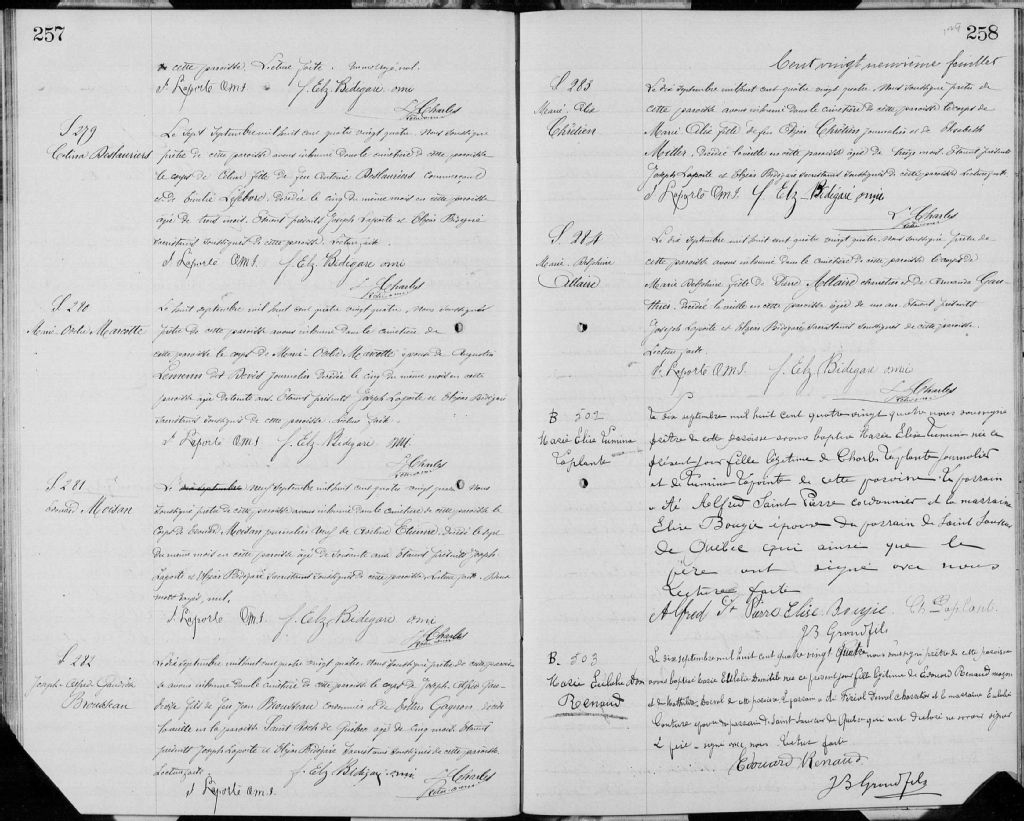 257
de cette paroisse. Lecture faite.
J. Laporte O.M.I. f. Elz Bidégaré omi
L. Charles
S 279
Celina Deslauriers
Le Sept Septembre mil huit cent quatre vingt quatre, Nous Soussigné
prêtre de cette paroisse avons inhumé dans le cimetière de cette paroisse
le corps de Célina fille de feu Antoine Deslauriers commerçant
et de Emélie Lefebvre, décédée le cinq du même mois en cette paroisse
agée de trois mois. Etaient présents Joseph Laporte et Elzéar Bidégaré
Sacristains Soussignés de cette paroisse. Lecture faite.
J. Laporte O.M.I. f. Elz. Bidégaré omi
L. Charles
S 280
Marie Odélie Marcotte
Le huit septembre mil huit cent quatre vingt quatre, Nous Soussigné
prêtre de cette paroisse avons inhumé dans le cimetière de
cette paroisse le corps de Marie Odélie Marcotte épouse de Augustin
Lemerin dit Bevis Journalier décédée le cinq du même mois en cette
paroisse agée de trente ans. Etaient présents Joseph Laporte et Elzéar Bidégaré
Sacristains Soussignés de cette paroisse. Lecture faite.
J. Laporte O.M.I. f. Elz. Bidégaré omi
L. Charles
S 281
Edouard Moisan
Le dix septembre neuf Septembre mil huit cent quatre vingt quatre Nous
Soussigné prêtre de cette paroisse avons inhumé dans le cimetière de cette paroisse le
Corps de Edouard Moisan journalier veuf de Etienne, décédé le sept
du même mois en cette paroisse agé de soixante ans Etaient présents Joseph
Laporte et Elzéar Bidégaré Sacristains Soussignés de cette paroisse, Lecture faite. Deux
mots rayés, nul.
J. Laporte O.M.I. f. Elz Bidégaré omi
L. Charles
S 282
Joseph Alfred
Brousseau
Le dix septembre mil huit cent quatre vingt quatre, Nous Soussigné prêtre de cette paroisse
avons inhumé dans le cimetière de cette paroisse le corps de Joseph Alfred
fils de feu Jean Brousseau cordonnier et de Gagnon, décédé
la veille en la paroisse Saint Roch de Québec agé de cinq mois. Etaient
présents Joseph Laporte et Elzéar Bidégaré Sacristains Soussignés de cette paroisse.
Lecture faite. f. Elz Bidégaré omi L. Charles
J. Laporte O.M.I.
258
Cent vingt neuvième feuillet
S 283
Marie Alix
Chrétien
Le dix Septembre mil huit cent quatre vingt quatre, Nous Soussigné prêtre de
cette paroisse avons inhumé dans le cimetière de cette paroisse le corps de
Marie Alix fille de feu Chrétien journalier et de Elisabeth
Miller, décédée la veille en cette paroisse agée de treize mois. Etaient présents
Joseph Laporte et Elzéar Bidégaré Sacristains Soussignés de cette paroisse Lecture faite.
J. Laporte O.M.I. f. Elz. Bidégaré omi
L. Charles
S. 284
Marie Delphine
Allaire
Le dix Septembre mil huit cent quatre vingt quatre, Nous Soussigné prêtre de
cette paroisse avons inhumé dans le cimetière de cette paroisse le corps de
Marie Delphine fille de Pierre Allaire charretier et de Amanda Gau-
thier, décédée la veille en cette paroisse agée de un an Etaient présents
Joseph Laporte et Elzéar Bidégaré Sacristains Soussignés de cette paroisse.
Lecture faite.
J. Laporte O.M.I. f. Elz Bidégaré omi
L. Charles
B 502
Marie Elise Lumina
Laplante
Le dix septembre mil huit cent quatre vingt quatre nous soussigné
prêtre de cette paroisse avons baptisé Marie Elise Lumina née ce
présent jour fille légitime de Charles Laplante journalier
et de Lumina Lapointe de cette paroisse. Le parrain
a été Alfred Saint Pierre cordonnier et la marraine
Elise Bougie épouse du parrain de Saint Sauveur
de Québec qui ainsi que le
père ont signé avec nous
Lecture faite
Alfred St Pierre Elise Bougie. Ch. Laplant.
J B Grandfils
B. 503
Marie Eulalie
Renaud
Le dix septembre mil huit cent quatre vingt quatre nous soussigné prêtre de cette paroisse
avons baptisé Marie Eulalie née ce présent jour fille légitime de Edouard Renaud maçon
et de de cette paroisse Le parrain a été charretier et la marraine Eulalie
Couture épouse du parrain de Saint Sauveur de Québec qui ont déclaré ne savoir signer
Le père a signé avec nous. Lecture faite
Edouard Renaud
J B Grandfils